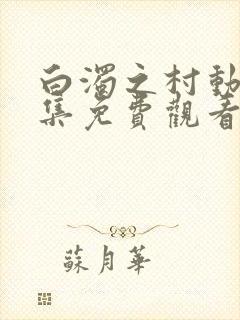 白濁之村動
集免費觀看
蘇月華